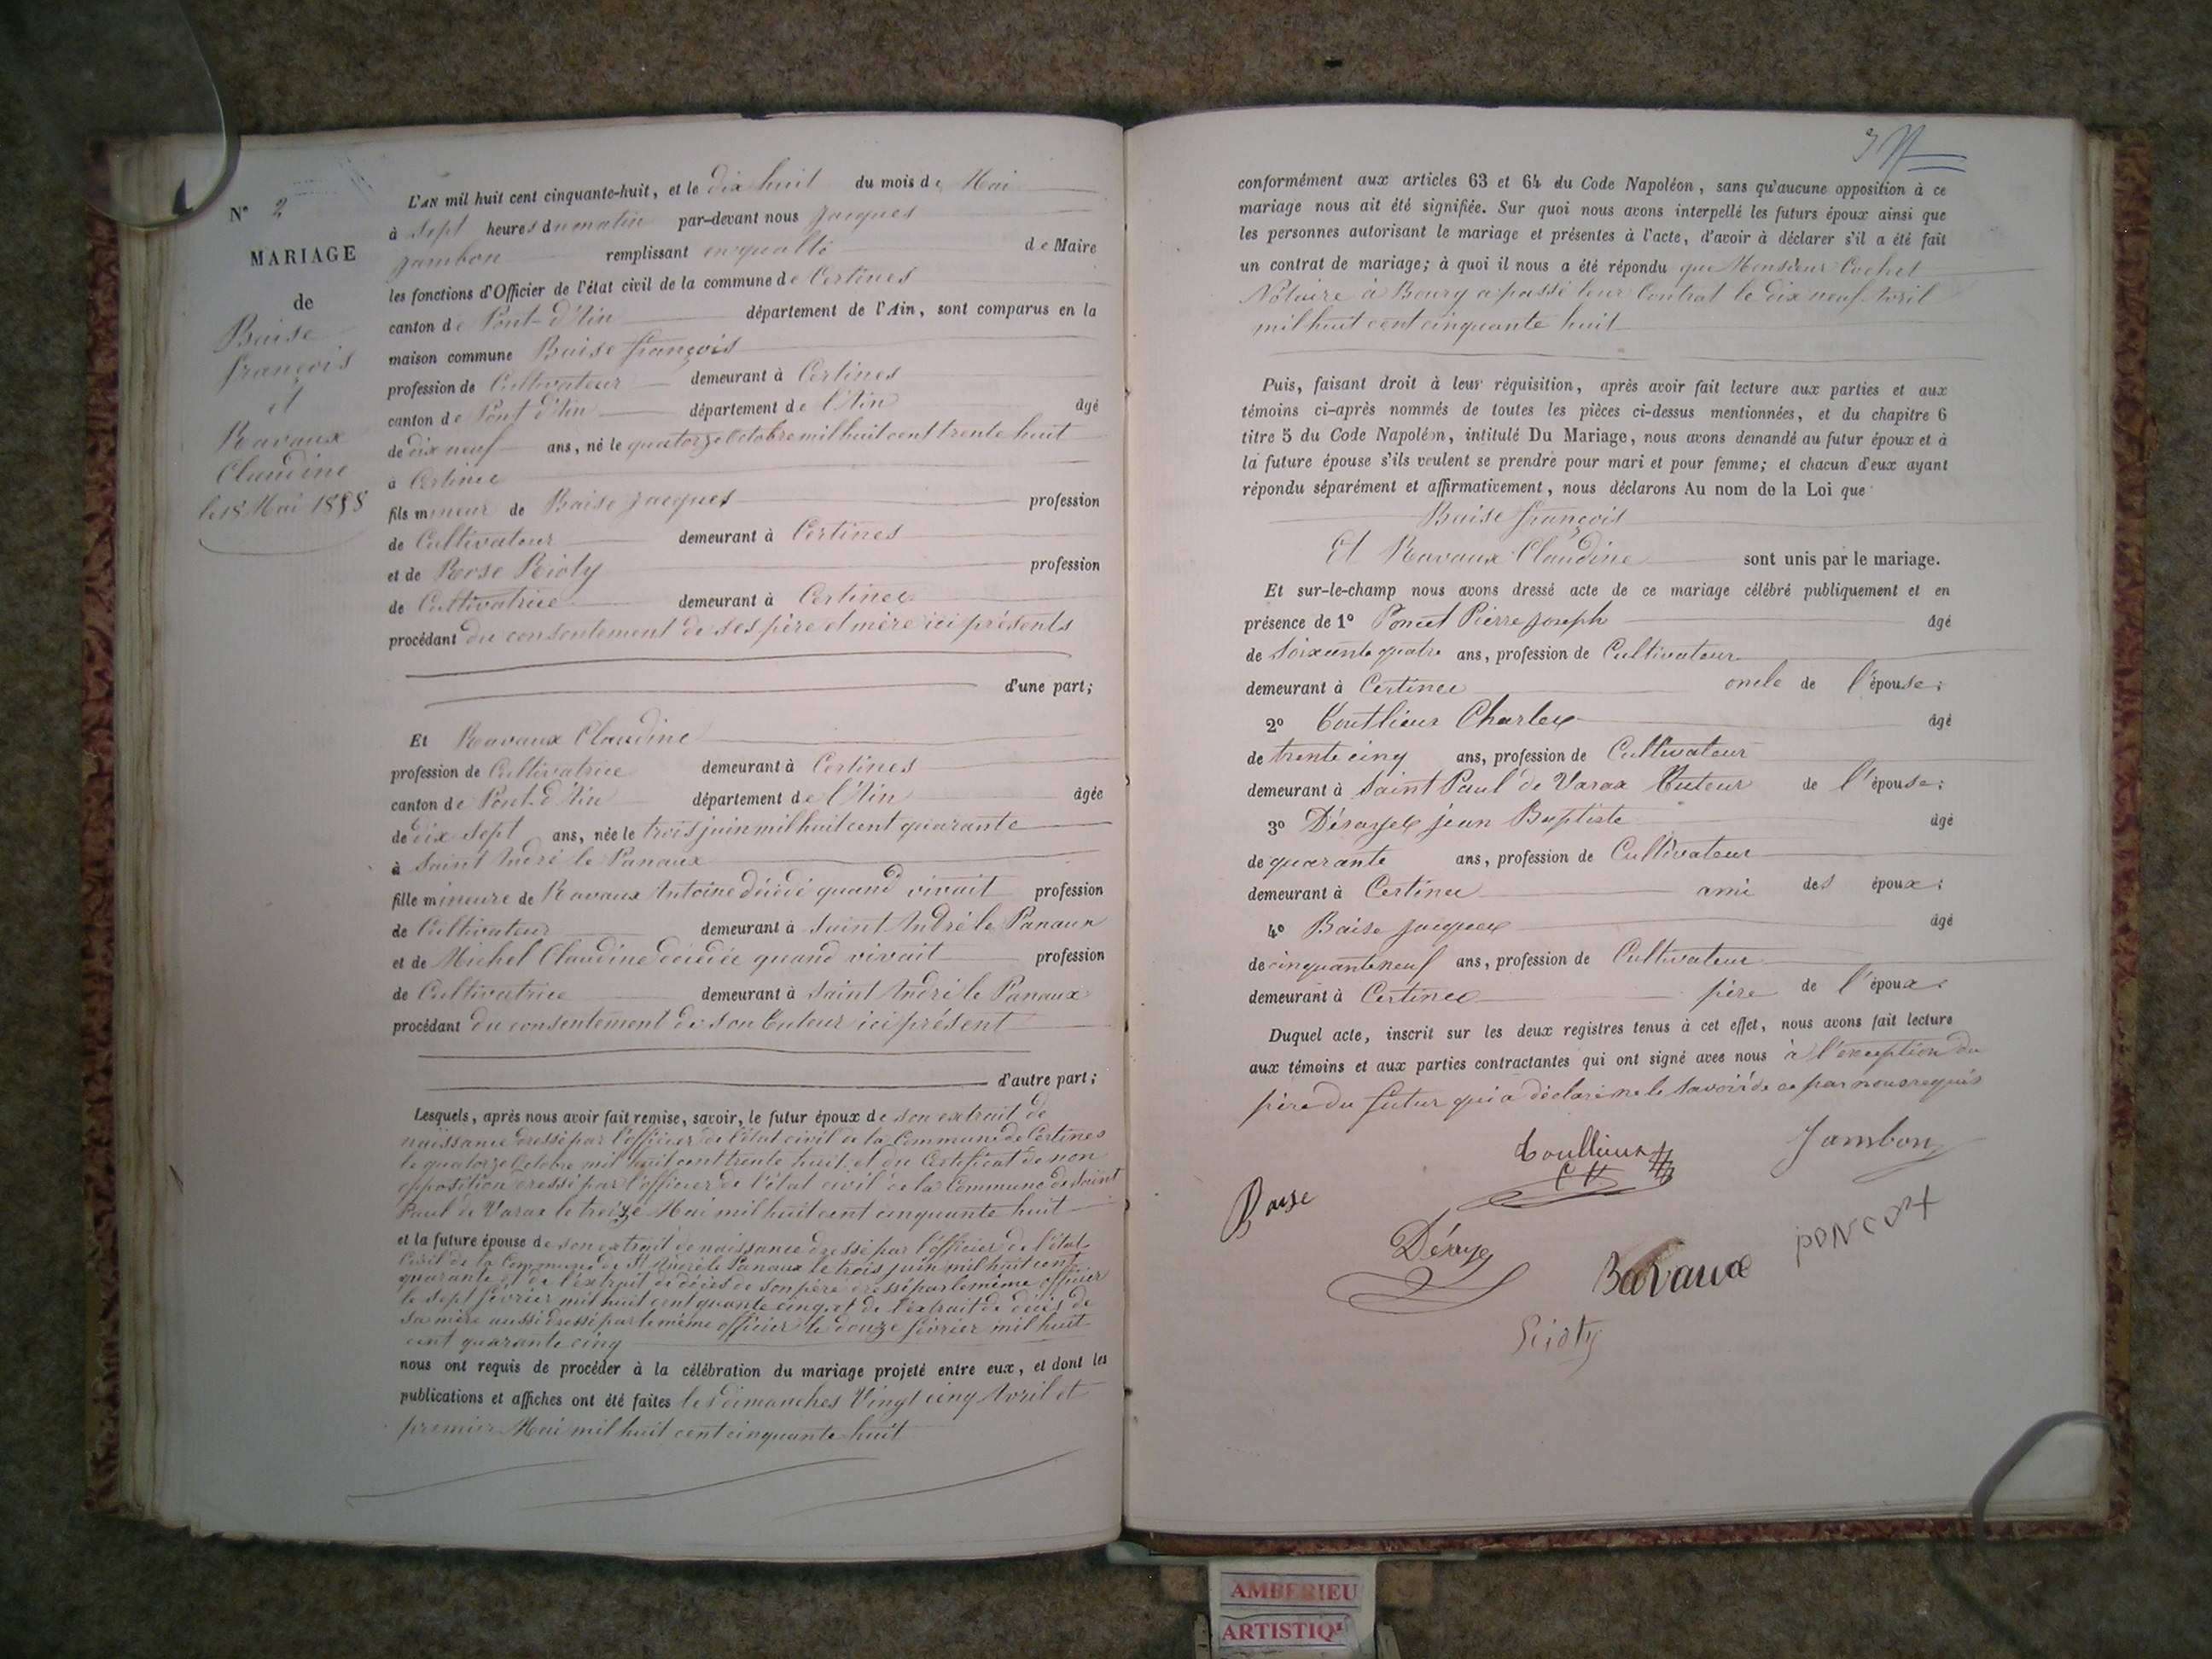 N° 2
MARIAGE
de
Baise
françois
et
Ravaux
Claudine
le 18 Mai 1858
L'AN mil huit cent cinquante-huit, et le dix huit du mois de Mai
à sept heures du matin par-devant nous Jacques
Jambon remplissant en qualité de Maire
les fonctions d'Officier de l'état civil de la commune de Certines
canton de Pont-d'Ain département de l'Ain, sont comparus en la
maison commune Baise françois
profession de Cultivateur demeurant à Certines
canton de Pont d'Ain département de l'Ain âgé
de dix neuf ans, né le quatorze Octobre mil huit cent trente huit
à Certines
fils mineur de Baise Jacques profession
de Cultivateur demeurant à Certines
et de Rose Pioty profession
de Cultivatrice demeurant à Certines
procédant du consentement de ses père et mère ici présents
d'une part;
Et Ravaux Claudine
profession de Cultivatrice demeurant à Certines
canton de Pont-d'Ain département de l'Ain âgée
de dix sept ans, née le trois juin mil huit cent quarante
à Saint André le Panoux
fille mineure de Ravaux Antoine décédé quand vivait profession
de Cultivateur demeurant à Saint André le Panoux
et de Michel Claudine décédée quand vivait profession
de Cultivatrice demeurant à Saint André le Panoux
procédant du consentement de son Tuteur ici présent
d'autre part;
Lesquels, après nous avoir fait remise, savoir, le futur époux de son extrait de
naissance dressé par l'officier de l'état civil de la Commune de Certines
le quatorze Octobre mil huit cent trente huit et du Certificat de non
opposition dressé par l'officier de l'état civil de la Commune de Saint
Paul de Varax le treize Mai mil huit cent cinquante huit
et la future épouse de son extrait de naissance dressé par l'officier de l'état
Civil de la Commune de St André le Panoux le trois juin mil huit cent
quarante et de l'extrait de décès de son père dressé par le même officier
le sept février mil huit cent quarante cinq, et de l'extrait de décès de
sa mère aussi dressé par le même officier le douze février mil huit
cent quarante cinq
nous ont requis de procéder à la célébration du mariage projeté entre eux, et dont les
publications et affiches ont été faites les dimanches Vingt cinq Avril et
premier Mai mil huit cent cinquante huit
conformément aux articles 63 et 64 du Code Napoléon, sans qu'aucune opposition à ce
mariage nous ait été signifiée. Sur quoi nous avons interpellé les futurs époux ainsi que
les personnes autorisant le mariage et présentes à l'acte, d'avoir à déclarer s'il a été fait
un contrat de mariage; à quoi il nous a été répondu que Monsieur Cochet
Notaire à Bourg a passé leur Contrat le dix neuf Avril
mil huit cent cinquante huit
Puis, faisant droit à leur réquisition, après avoir fait lecture aux parties et aux
témoins ci-après nommés de toutes les pièces ci-dessus mentionnées, et du chapitre 6
titre 5 du Code Napoléon, intitulé Du Mariage, nous avons demandé au futur époux et à
la future épouse s'ils veulent se prendre pour mari et pour femme; et chacun d'eux ayant
répondu séparément et affirmativement, nous déclarons Au nom de la Loi que
Baise françois
Et Ravaux Claudine sont unis par le mariage.
Et sur-le-champ nous avons dressé acte de ce mariage célébré publiquement et en
présence de 1° Poncet Pierre Joseph âgé
de soixante quatre ans, profession de Cultivateur
demeurant à Certines oncle de l'épouse;
2° Coutlieux Charles âgé
de trente cinq ans, profession de Cultivateur
demeurant à Saint Paul de Varax Tuteur de l'épouse;
3° jean Baptiste âgé
de quarante ans, profession de Cultivateur
demeurant à Certines ami des époux;
4° Baise Jacques âgé
de cinquante neuf ans, profession de Cultivateur
demeurant à Certines père de l'époux.
Duquel acte, inscrit sur les deux registres tenus à cet effet, nous avons fait lecture
aux témoins et aux parties contractantes qui ont signé avec nous à l'exception du
père du futur qui a déclaré ne le savoir de ce par nous requis
Coullieux Jambon
Baise
Ravaux poncet
Pioty
AMBERIEU
ARTISTIQ